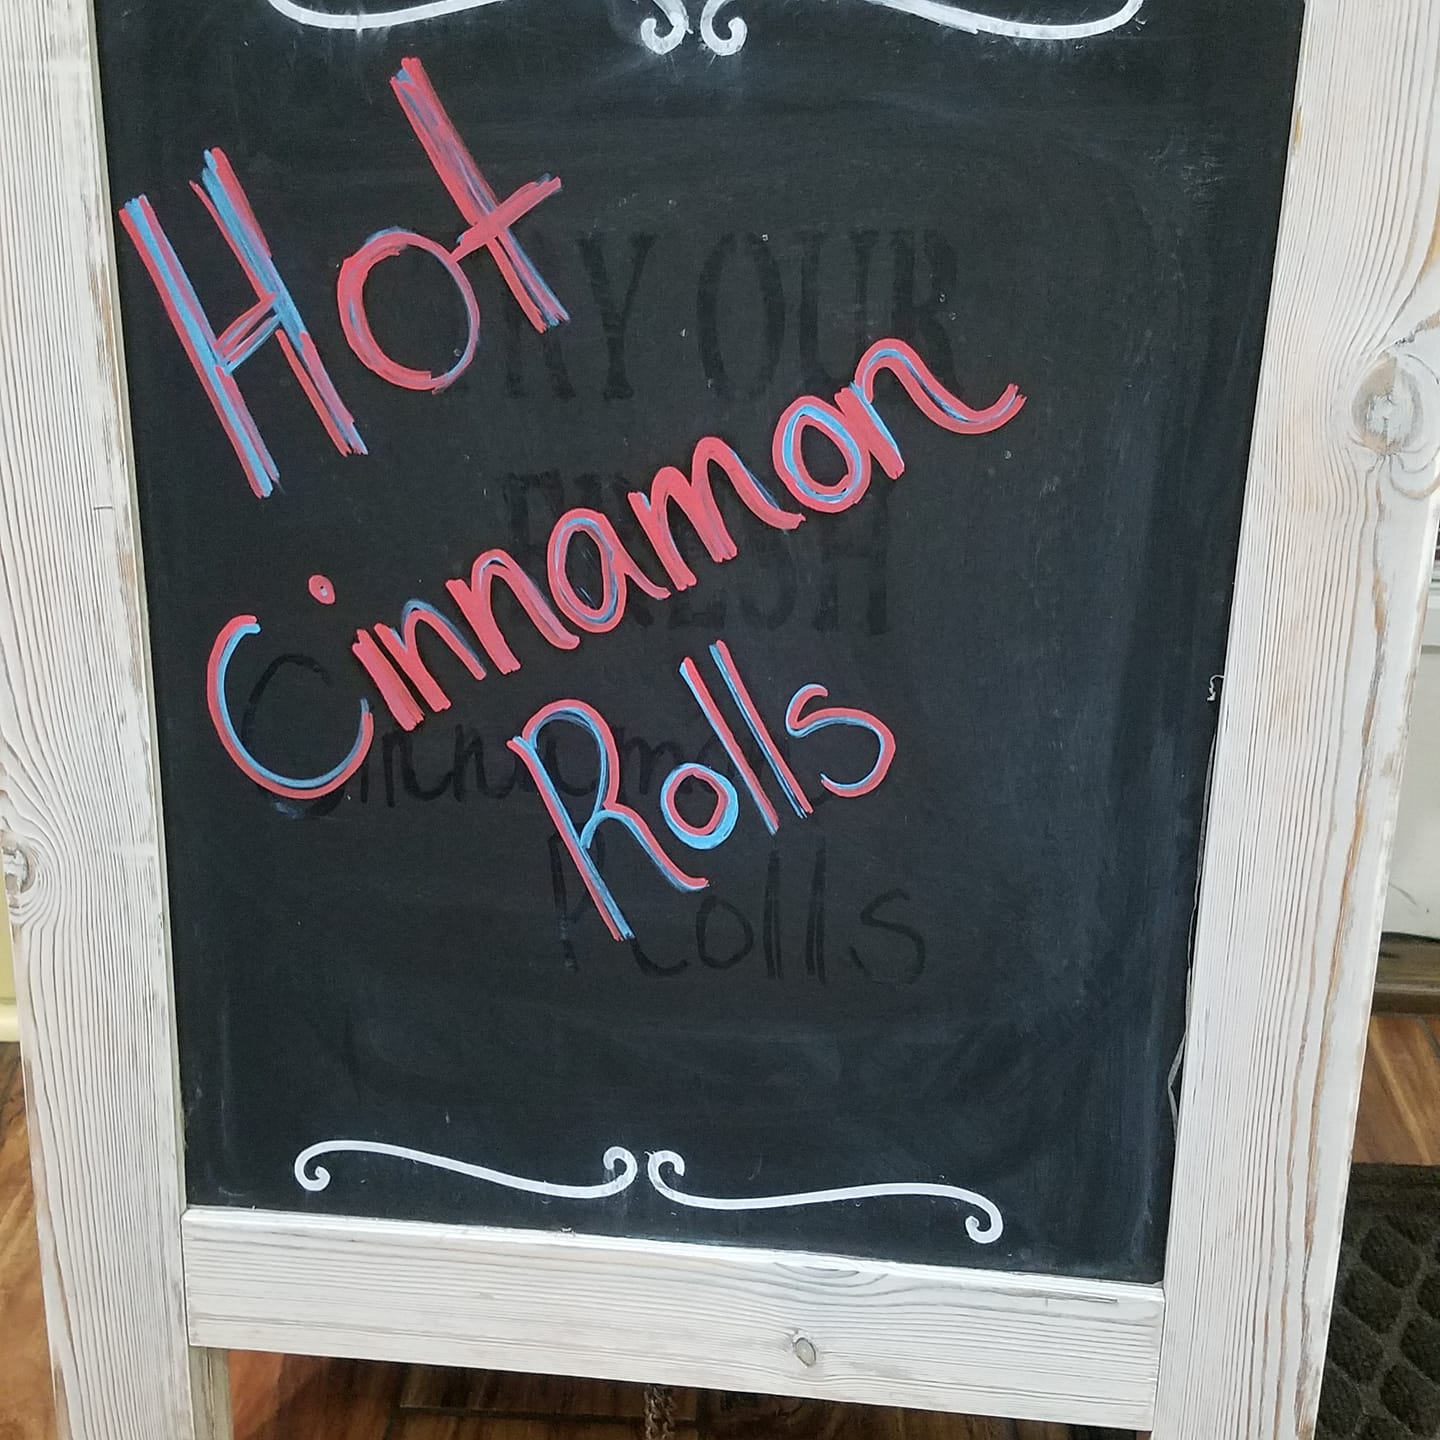 Hot
Cinnamon
Rolls
OUR
FRESH
Cinnamon
Rolls